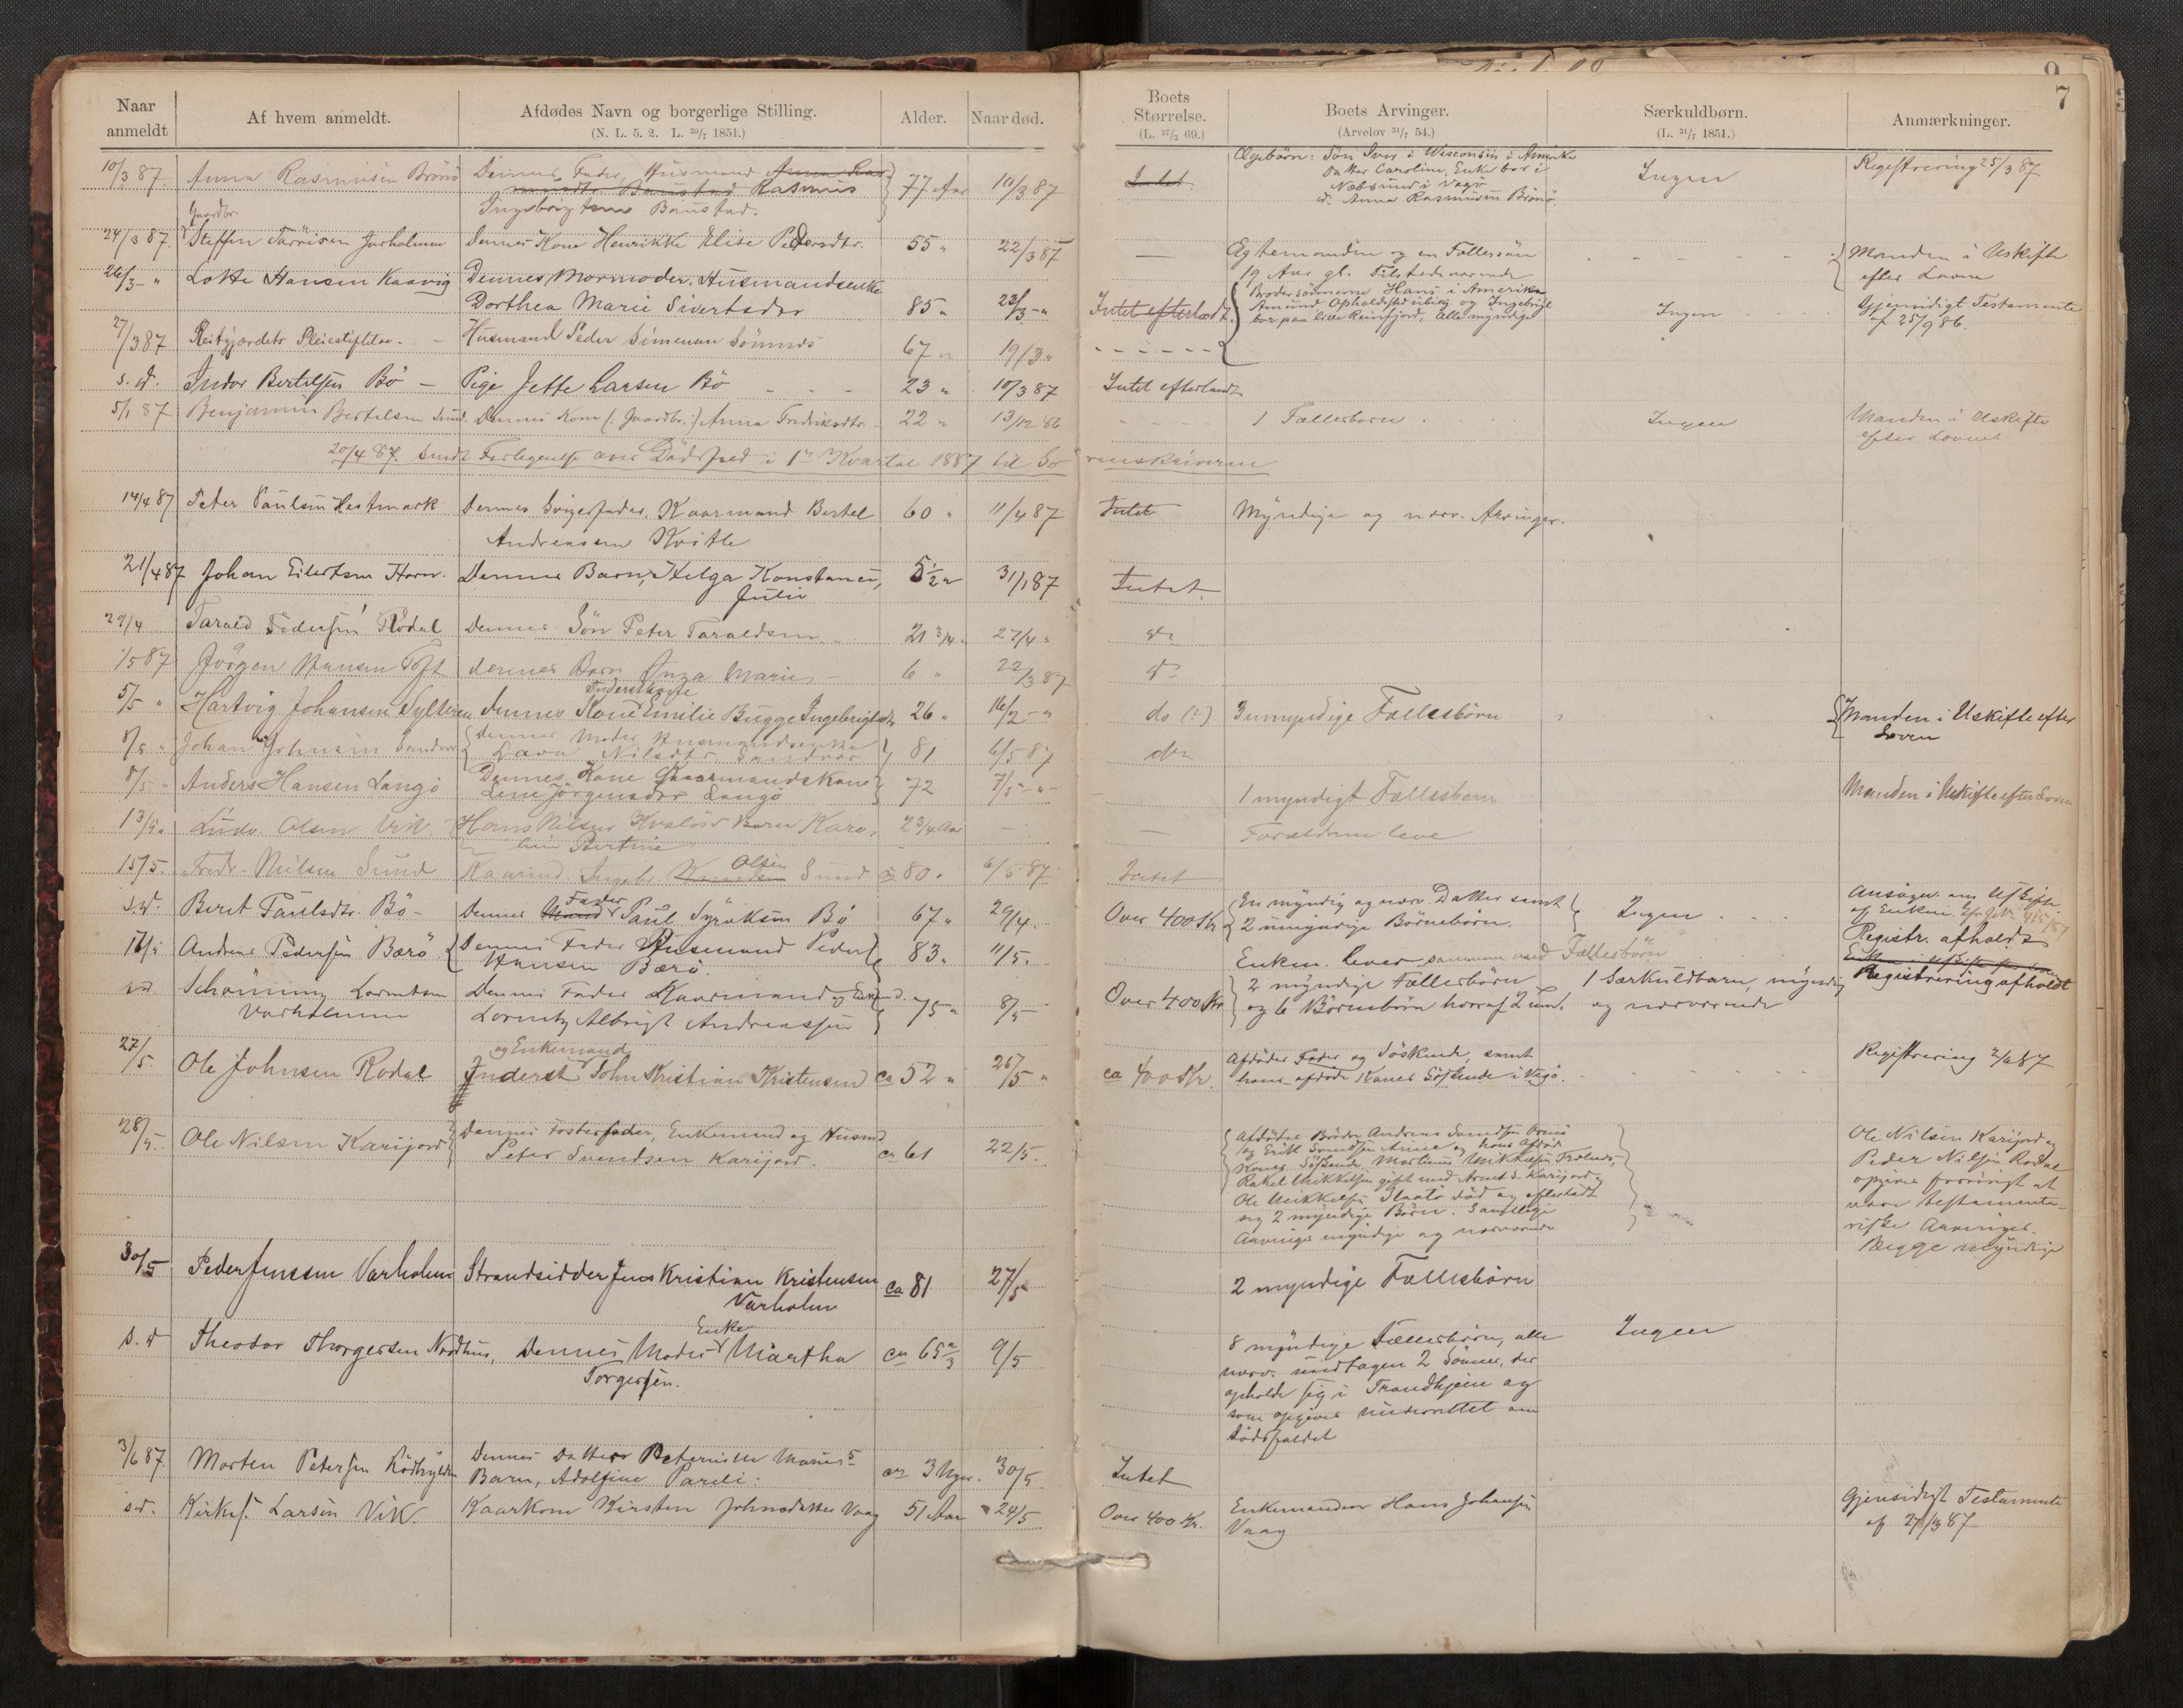 9
7
Naar anmeldt
Af hvem anmeldt.
Afdødes Navn og borgerlige Stilling.
(N. L. 5. 2. L. 20/7 1851.)
Alder.
Naar død.
Boets Størrelse.
(L. 27/2 69.)
Boets Arvinger.
(Arvelov 31/7 54.)
Særkuldbørn.
(L. 31/7 1851.)
Anmærkninger.
10/3 87. Anna Rasmusen Brönö Dennes Fader, Husmand Rasmus Ingebrigtsen Baustad. 77 Aar 10/3 87 Intet
Ægebörn: Sön Iver i Wisconsin i Amerika
Datter Caroline, Enke bor i
Anna Rasmusen Brönö
Ingen
Registrering 25/3 87
24/3 87. Gaardbr. Steffen Torrisen Dennes Kone Henrikke Elise Pedersdtr. 55 " 22/3 87 —
Egtemanden og en Fællessön
19 Aar gl. Tilstedeværende
Manden i Uskifte
efter Loven
26/3 " Lotte Hansen Kaavig Dennes Mormoder, Husmandsenke
Dorthea Marie Sivertsdtr 85 " 23/3 " Intet efterladt.
Brodersönnerne Hans i Amerika
Amund og Ingebrigt
bor paa lille Reinfjord, Alle myndige
Ingen
Gjensidigt Testamente
af 25/9 86.
27/3 87 Reitgjærdets Pleiestiftelse. Husmand Peder Simensen Sömnes 67 " 19/3 "
s. d. Indor Bertelsen Bö — Pige Jette Larsen Bö 23 " 10/3 87 Intet efterladt
5/1 87 Benjamin Bertelsen Sund. Dennes Kone (: Gaardbr. :) Anna Fredriksdtr 22 " 13/12 86 1 Fællesbarn Ingen Manden i Uskifte
efter Loven.
20/4 87. Sendt Fortegnelse over Dödsfald i 1ste Kvartal 1887 til Sorenskriveren
14/4 87 Peter Paulsen Hestmark Dennes Svigerfader, Kaarmand Bertel
Andreassen Kvitle 60 " 11/4 87 Intet Myndige og nærv. Arvinger.
21/4 87 Johan Eilertsen Horn. Dennes Barn, Helga Konstance,
Julie 5 1/2 " 31/1 87 Intet.
27/4 Tarald Pedersen Rodal Dennes Sön Peter Taraldsen 21 3/4 " 27/4 " do
1/5 87 Jörgen Hansen Toft dennes Barn Inga Marie 6 " 22/3 87 do
5/5 " Hartvig Johansen Sylteren dennes Kone Inderstkone Emilie Bugge Ingebrigtsdtr 26 " 16/2 " do (:) 3 umyndige Fællesbörn
Manden i Uskifte efter
Loven
8/5 " Johan Johnsen Sandvær dennes Moder Husmandsenke
Lava Nilsdtr Sandvær 81 6/5 87 do
8/5 " Anders Hansen Langö Dennes Kone Kaarmandskone
Lene Jörgensdtr Langö 72 7/5 " 1 myndigt Fællesbarn
Manden i Uskifte efter Loven
13/5 " Ludv. Olsen Vik Hans Nilsens Kvalöes Barn Karo-
line Bertine 2 3/4 Aar — Forældrene leve
15/5. Fredr. Nielsen Sund Kaarmd. Ingebr. Olsen Sund 80. 6/5 87 Intet
s.d. Beret Paulsdtr. Bö — Dennes Fader Paul Syraksen Bö 67 " 29/4. Over 400 Kr.
En myndig og nærv. Datter samt
2 umyndige Börnebörn.
Ingen
Ansöger om Uskifte
af Enken.
Registr. afholdt
16/5 Andreas Pedersen Bærö Dennes Fader Husmand Peder
Hansen Bærö. 83. 11/5.
Enken lever sammen med Fællesbörn
s.d. Schönning Lorentsen
Varholmen Dennes Fader Kaarmand og Enkmd.
Lorentz Albrigt Andreassen 75 " 8/5 Over 400 Kr
2 myndige Fællesbörn
og 6 Börnebörn hvoraf 2 um.
1 Særkuldbarn, myndig
og nærværende
Registrering afholdt
27/5. Ole Johnsen Rodal og Enkemand
Inderst John Kristian Kristensen ca 52 " 26/5 " ca 400 Kr.
Afdödes Fader og Söskende, samt
hans afdöde Kones Söskende i Vegö.
Registrering 2/6 87
28/5. Ole Nilsen Karijord Dennes Fosterfader, Enkemand og Husmd
Peter Svendsen Karijord. ca 61 22/5.
Afdödes Brödre Andreas Svendsen
og Erik Svendsen og hans Afdöde
Kones Söskende Martinus Mikkelsen
Rakel Mikkelsen gift med Arnt S. Karijord og
Ole Mikkelsen död og efterladt
sig 2 myndige Börn. Samtlige
Arvinger myndige og nærværende
Ole Nilsen Karijord og
Peder Nilsen Rodal
opgives forövrigt at
være testamenta-
riske Arvinger.
Begge myndige
30/5 Peder Jenssen Varholmen Strandsidder Jens Kristian Kristensen
Varholmen ca 81 27/5 2 myndige Fællesbörn
s. d Theodor Thorgersen Nordhus, Dennes Moder Enke Martha
Torgersen. ca 65 9/5
8 myndige Fællesbörn, alle
nærv. undtagen 2 Sönner, der
opholde sig i Trondhjem og
som opgives underrettet om
Dödsfaldet
Ingen
3/6 87 Morten Petersen Dennes Datter Peternille Maries
Barn, Adolfine Pareli. ca 3 Uger. 30/5. Intet
s.d. Kirkes. Larsen Vik. Kaarkone Kirsten Johnsdatter Vaag 51 Aar 24/5 Over 400 Kr.
Enkemanden Hans Johansen
Vaag
Gjensidigt Testamente
af 27/3 67